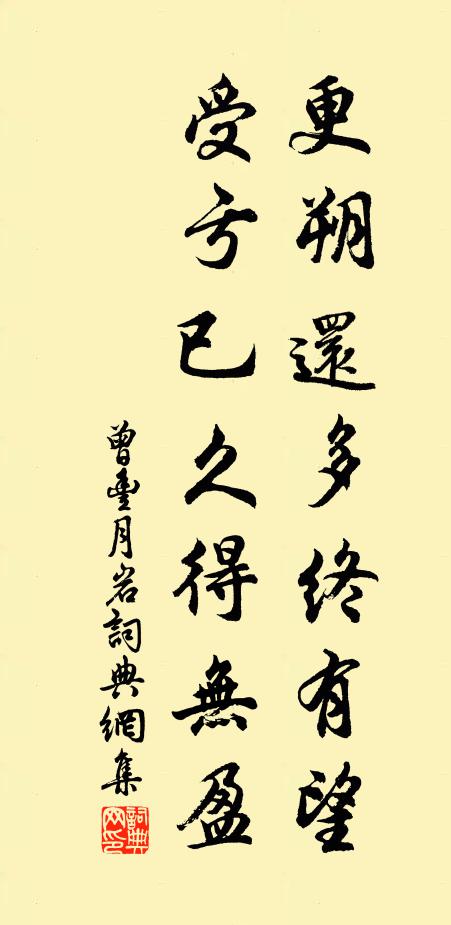 更朔還多終有望
受亏已久得無盈
曾豊月岩詞典網集
詞典网印